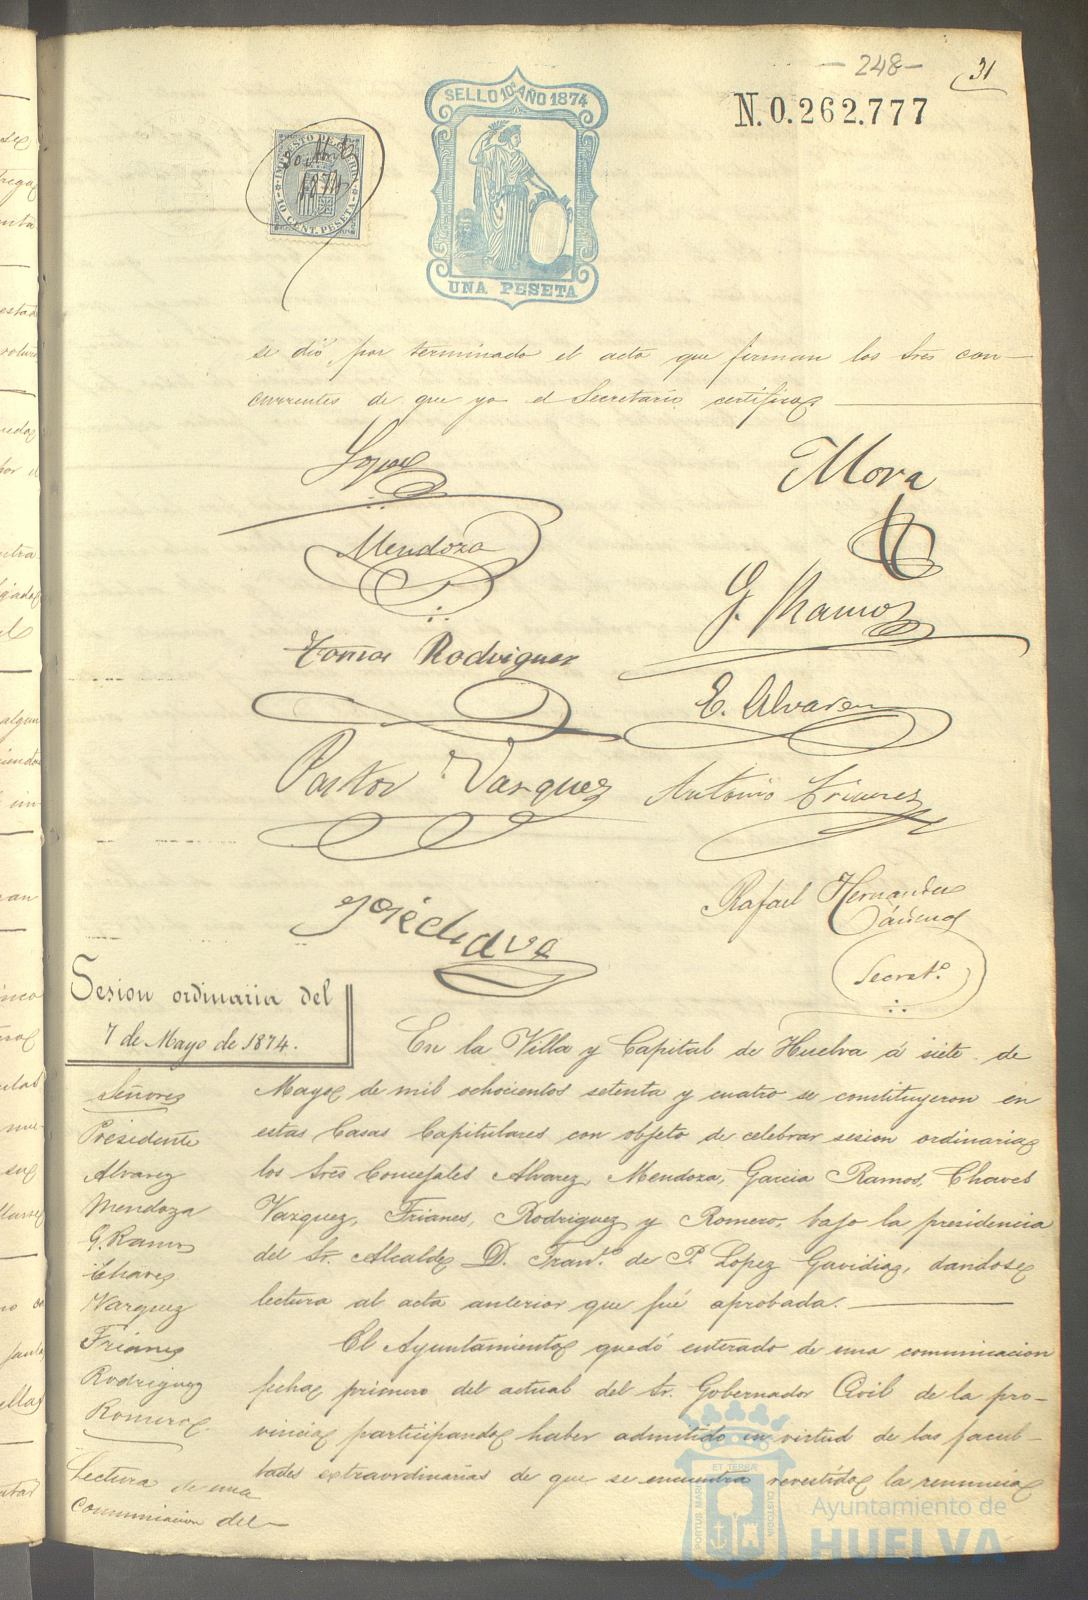 — 248 —
31
N. 0.262.777
SELLO 10º AÑO 1874
UNA PESETA
IMPUESTO DE GUERRA
10 CENT. PESETA
1874
se dió por terminado el acto que firman los Sres con-
currentes de que yo el Secretario certifico
Lopez
Mora
Mendoza
G. Ramos
Tomas Rodriguez
E. Alvarez
Pastor Vazquez
Antonio Frianes
José Chaves
Rafael Hernandez
Secretº
Sesion ordinaria del
7 de Mayo de 1874.
Señores
Presidente
Alvarez
Mendoza
G. Ramos
Chaves
Vazquez
Frianes
Rodriguez
Romero
Lectura de una
comunicacion del
En la Villa y Capital de Huelva á siete de
Mayo de mil ochocientos setenta y cuatro se constituyeron en
estas Casas Capitulares con objeto de celebrar sesion ordinaria
los Sres Concejales Alvarez, Mendoza, Garcia Ramos, Chaves
Vazquez, Frianes, Rodriguez y Romero, bajo la presidencia
del Sr. Alcalde D. Franº de P. Lopez Gavidia, dandose
lectura al acta anterior que fué aprobada.
El Ayuntamiento quedó enterado de una comunicacion
fecha primero del actual del Sr. Gobernador Civil de la pro-
vincia participando haber admitido en virtud de las facul-
tades extraordinarias de que se encuentra revestido la renuncia
PORTUS MARIS ET TERRÆ CUSTODIA
Ayuntamiento de
HUELVA